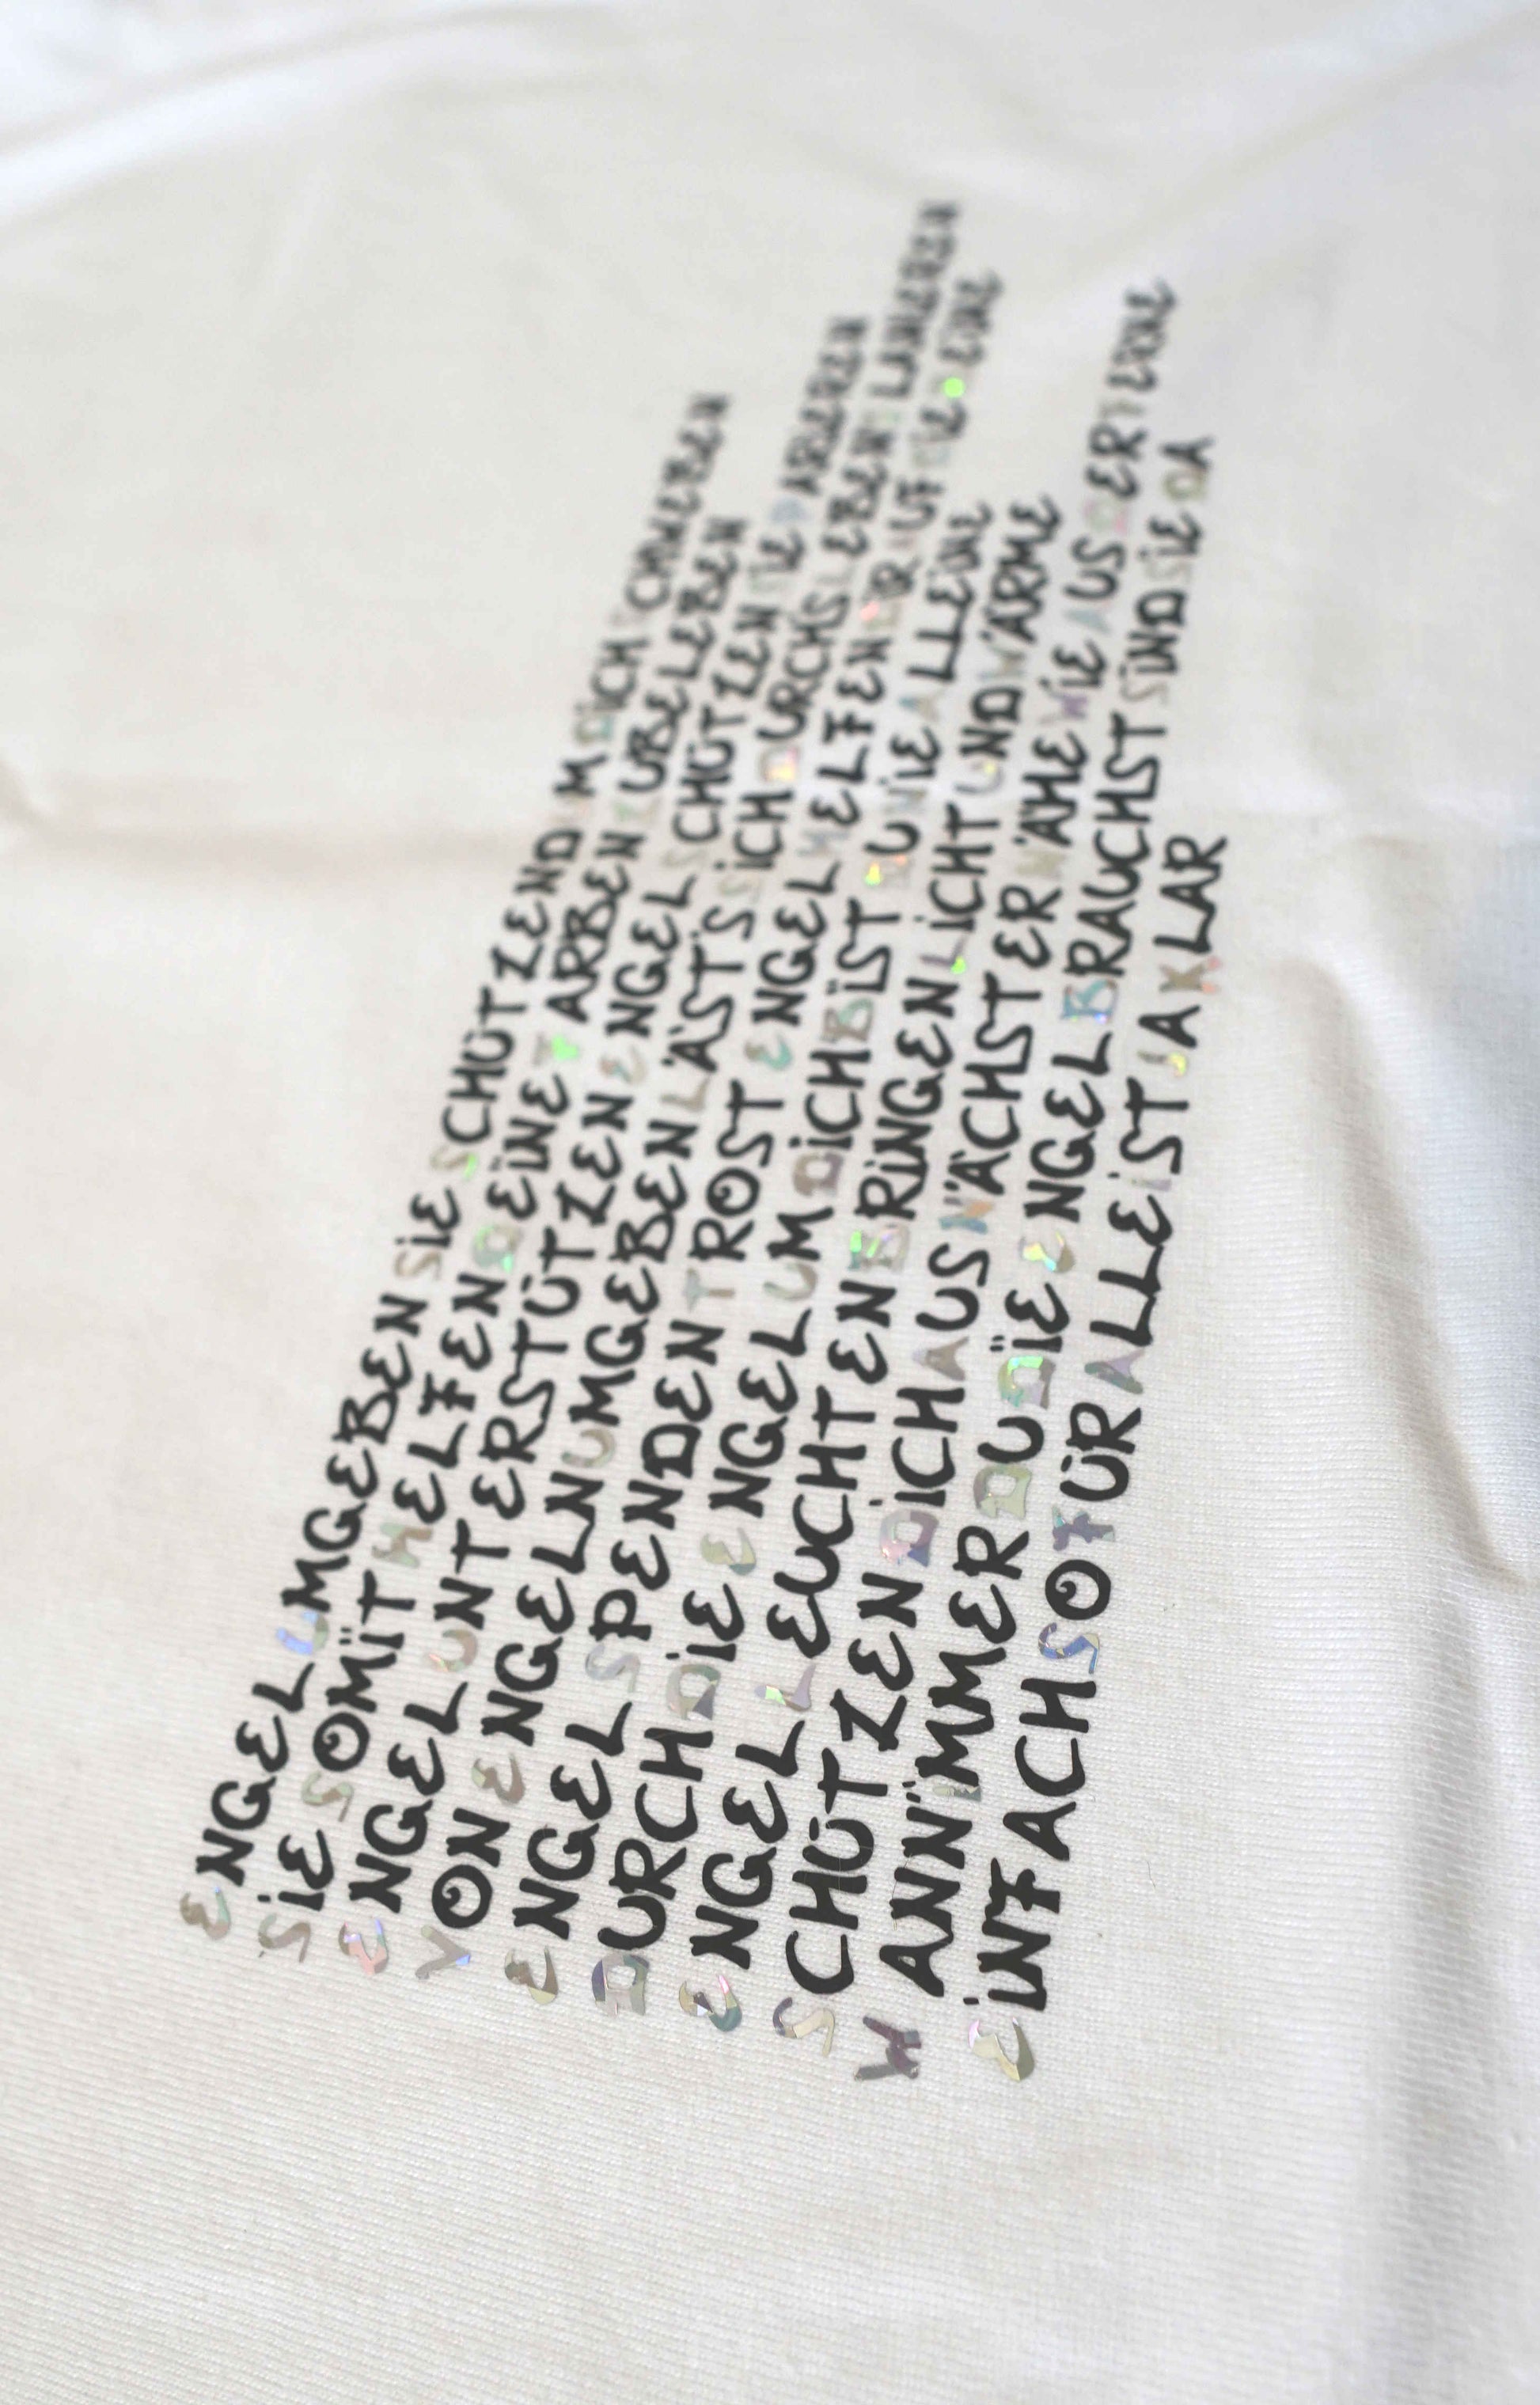 ENGEL UMGEBEN SIE SCHÜTZEND UM DICH SCHWEBEN
SIE SOMIT HELFEN DEINE FARBEN ZU BELEBEN
ENGEL UNTERSTÜTZEN ENGEL SCHÜTZEN SIE PARIEREN
VON ENGELN UMGEBEN LÄSTS SICH DURCHS LEBEN FLANIEREN
ENGEL SPENDEN TROST ENGEL HELFEN DIR AUF DIE BEINE
DURCH DIE ENGEL UM DICH BIST DU NIE ALLEINE
ENGEL LEUCHTEN BRINGEN LICHT UND WÄRME
SCHÜTZEN DICH AUS NÄCHSTER NÄHE WIE AUS DER FERNE
WANN IMMER DU DIE ENGEL BRAUCHST SIND SIE DA
EINFACH SO FÜR ALLE IST JA KLAR